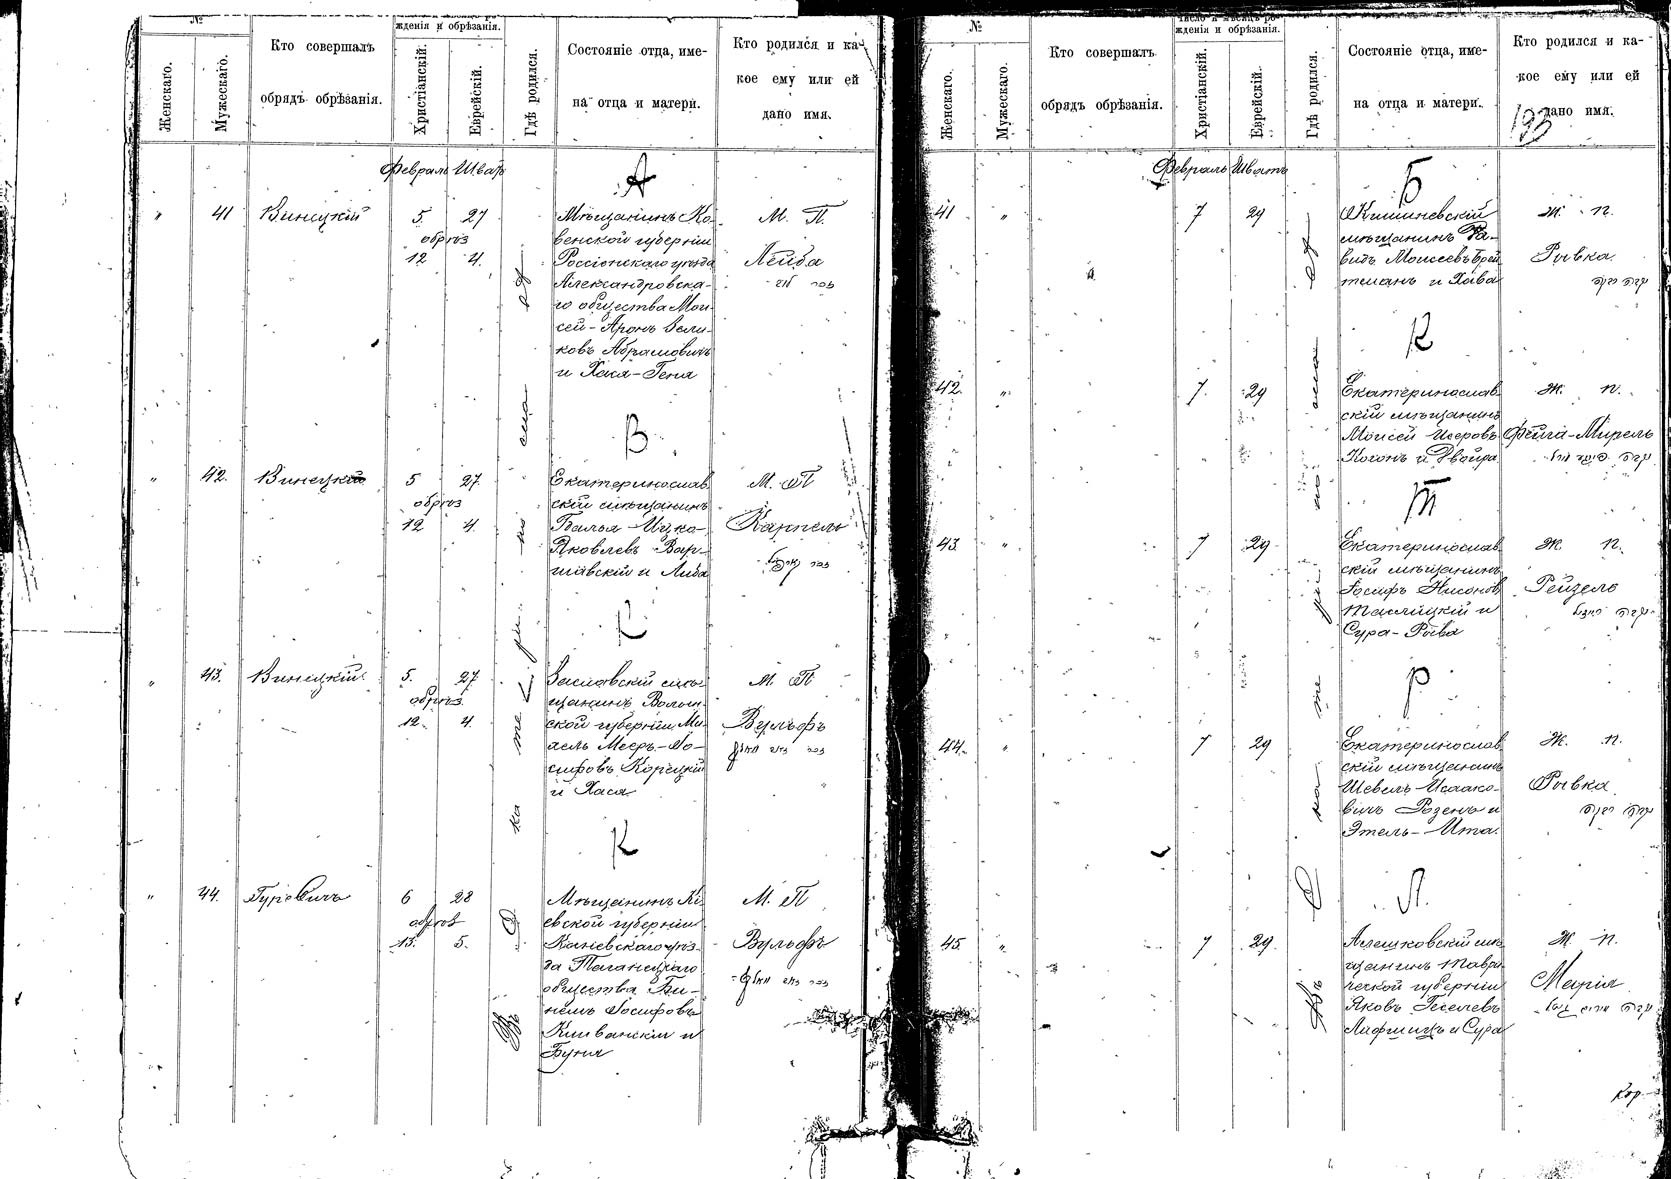 №
Женскаго.
Мужескаго.
Кто совершалъ
обрядъ обрѣзанія.
жденія и обрѣзанія.
Христіанскій.
Еврейскій.
Гдѣ родился.
Состояніе отца, име-
на отца и матери.
Кто родился и ка-
кое ему или ей
дано имя.
Февраль Шватъ
А
" 41 Винецкій 5 27
обрѣз
12 4
Мѣщанинъ Ко-
венской губерніи
Россіенскаго уѣзда
Александровска-
го общества Мои-
сей-Аронъ Зели-
ковъ Абрамовичъ
и Хася-Геня
М. П.
Лейба
В
" 42. Винецкій 5 27
обрѣз
12 4
Екатеринослав
скій мѣщанинъ
Яковлевъ Вар-
шавскій и Либа
М. П
Карпель
К
" 43. Винецкій 5. 27
обрѣз
12. 4.
Заславскій мѣ-
щанинъ Волын-
ской губерніи Ми-
хель Мееръ-Іо-
сифовъ Корецкій
и Хася
М. П
Вульфъ
К
" 44. Гуревичъ 6 28
обрѣз
13. 5.
Мѣщанинъ Кі
евской губерніи
Каневскаго уѣз-
да Таганецкаго
общества Би-
немъ Іосифовъ
и
Буня
М. П
Вульфъ
Въ Екатеринославѣ
№
Женскаго.
Мужескаго.
Кто совершалъ
обрядъ обрѣзанія.
Число и мѣсяцъ ро-
жденія и обрѣзанія.
Христіанскій.
Еврейскій.
Гдѣ родился.
Состояніе отца, име-
на отца и матери.
Кто родился и ка-
кое ему или ей
дано имя.
193
Февраль Шватъ
Б
41 " 7 29
Кишиневскій
мѣщанинъ Да-
видъ Моисеевъ Брой
тманъ и Хава
Ж. п.
Рывка
К
42. " 7. 29
Екатеринослав
скій мѣщанинъ
Моисей Исеровъ
Коганъ и Двойра
Ж. п.
Фейга-Мирель
Т
43 " 7 29
Екатеринослав
скій мѣщанинъ
Іосифъ Нисоновъ
Таслицкій и
Сура-Рыва
Ж. п.
Рейзель
Р
44. " 7 29
Екатеринослав
скій мѣщанинъ
Шевель Исаако-
вичъ Розенъ и
Этель-Ита.
Ж. п.
Рывка
Л.
45. " 7 29.
Алешковскій мѣ
щанинъ Таври
ческой губерніи
Яковъ Геселевъ
Лифшицъ и Сура
Ж. п.
Марія